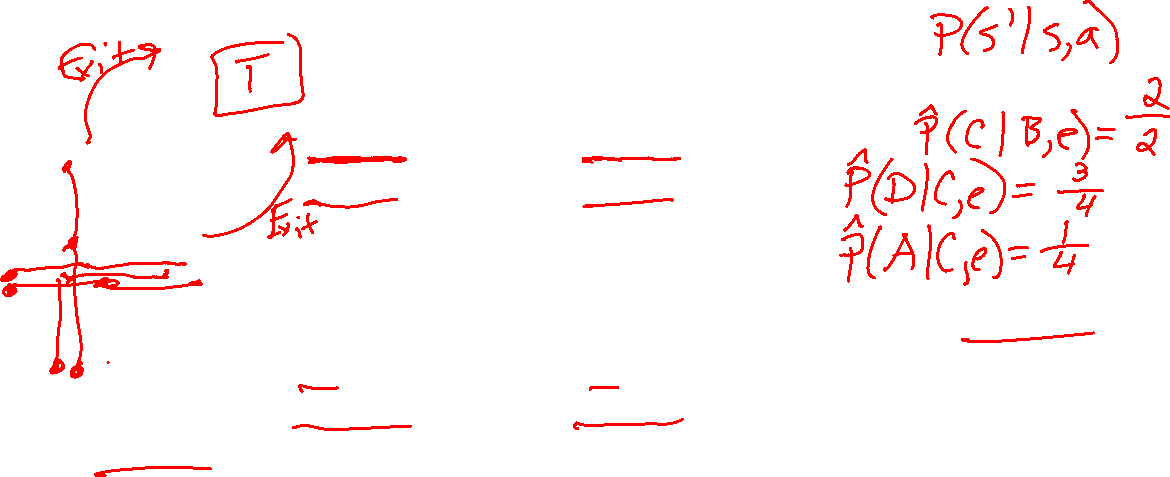 Exit
T
Exit
P(s'|s,a)
P̂(C|B,e)=2/2
P̂(D|C,e)=3/4
P̂(A|C,e)=1/4